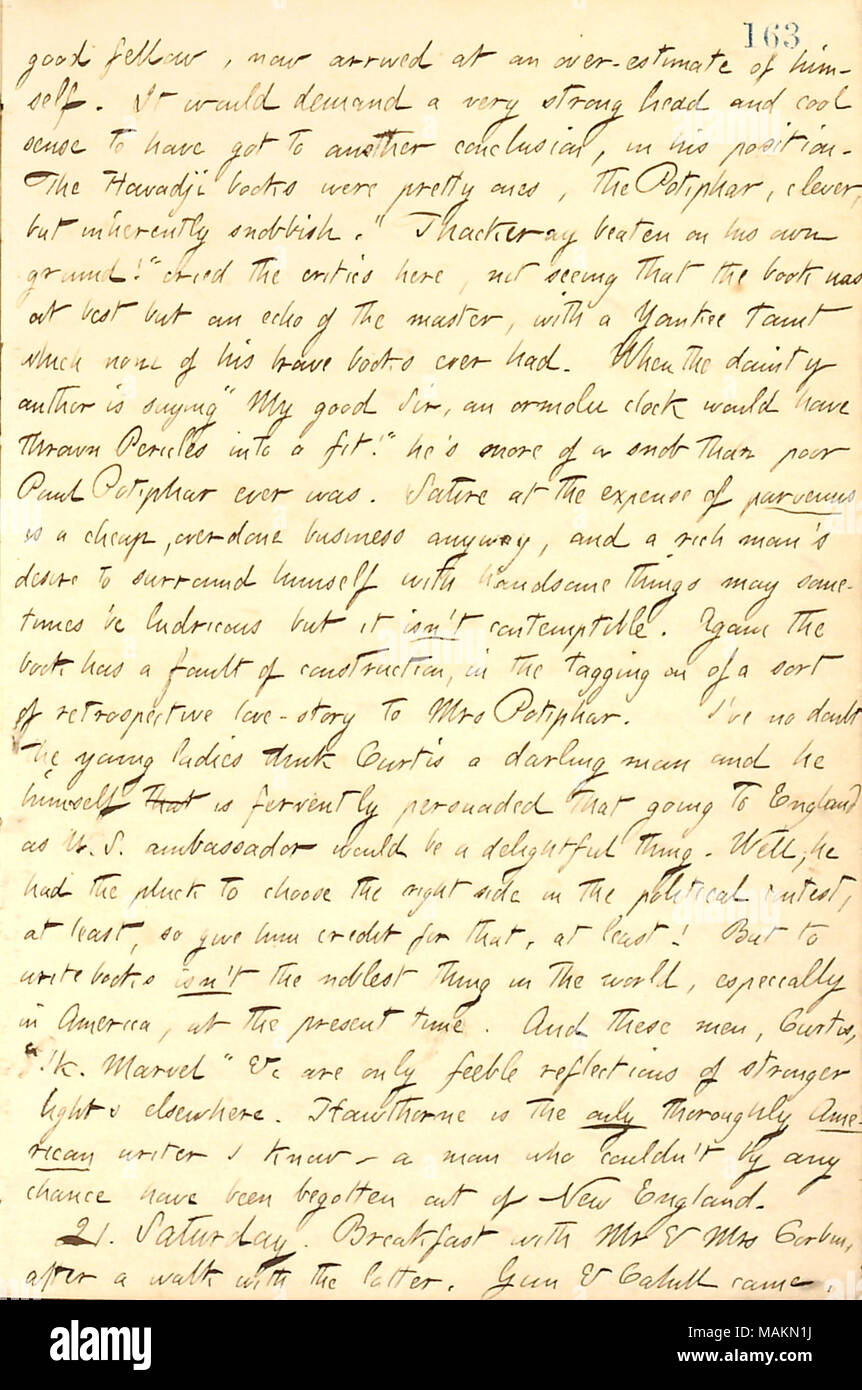 163
good fellow, now arrived at an over-estimate of him-
self. It would demand a very strong head and cool
sense to have got to another conclusion, in his position.
The Howadji books were pretty ones, the Potiphar, clever,
but inherently snobbish. "Thackeray beaten on his own
ground!" cried the critics here, not seeing that the book was
at best but an echo of the master, with a Yankee taint
which none of his brave books ever had. When the dainty
author is saying "My good Sir, an ormolu clock would have
thrown Pericles into a fit!" he's more of a snob than poor
Paul Potiphar ever was. Satire at the expense of parvenus
is a cheap, over-done business anyway, and a rich man's
desire to surround himself with handsome things may some-
times be ludicrous but it isn't contemptible. Again the
book has a fault of construction, in the tagging on of a sort
of retrospective love-story to Mrs Potiphar. I've no doubt
the young ladies think Curtis a darling man and he
himself that is fervently persuaded that going to England
as U. S. ambassador would be a delightful thing. Well, he
had the pluck to choose the right side in the political contest,
at least, so give him credit for that, at least! But to
write books isn't the noblest thing in the world, especially
in America, at the present time. And these men, Curtis,
"Ik. Marvel" &c are only feeble reflections of stronger
lights elsewhere. Hawthorne is the only thoroughly Ame-
rican writer I know — a man who couldn't by any
chance have been begotten out of New England.
21. Saturday. Breakfast with Mr & Mrs Corbin,
after a walk with the latter. Gun & Cahill came.
alamy
Image ID: MAKN1J
www.alamy.com